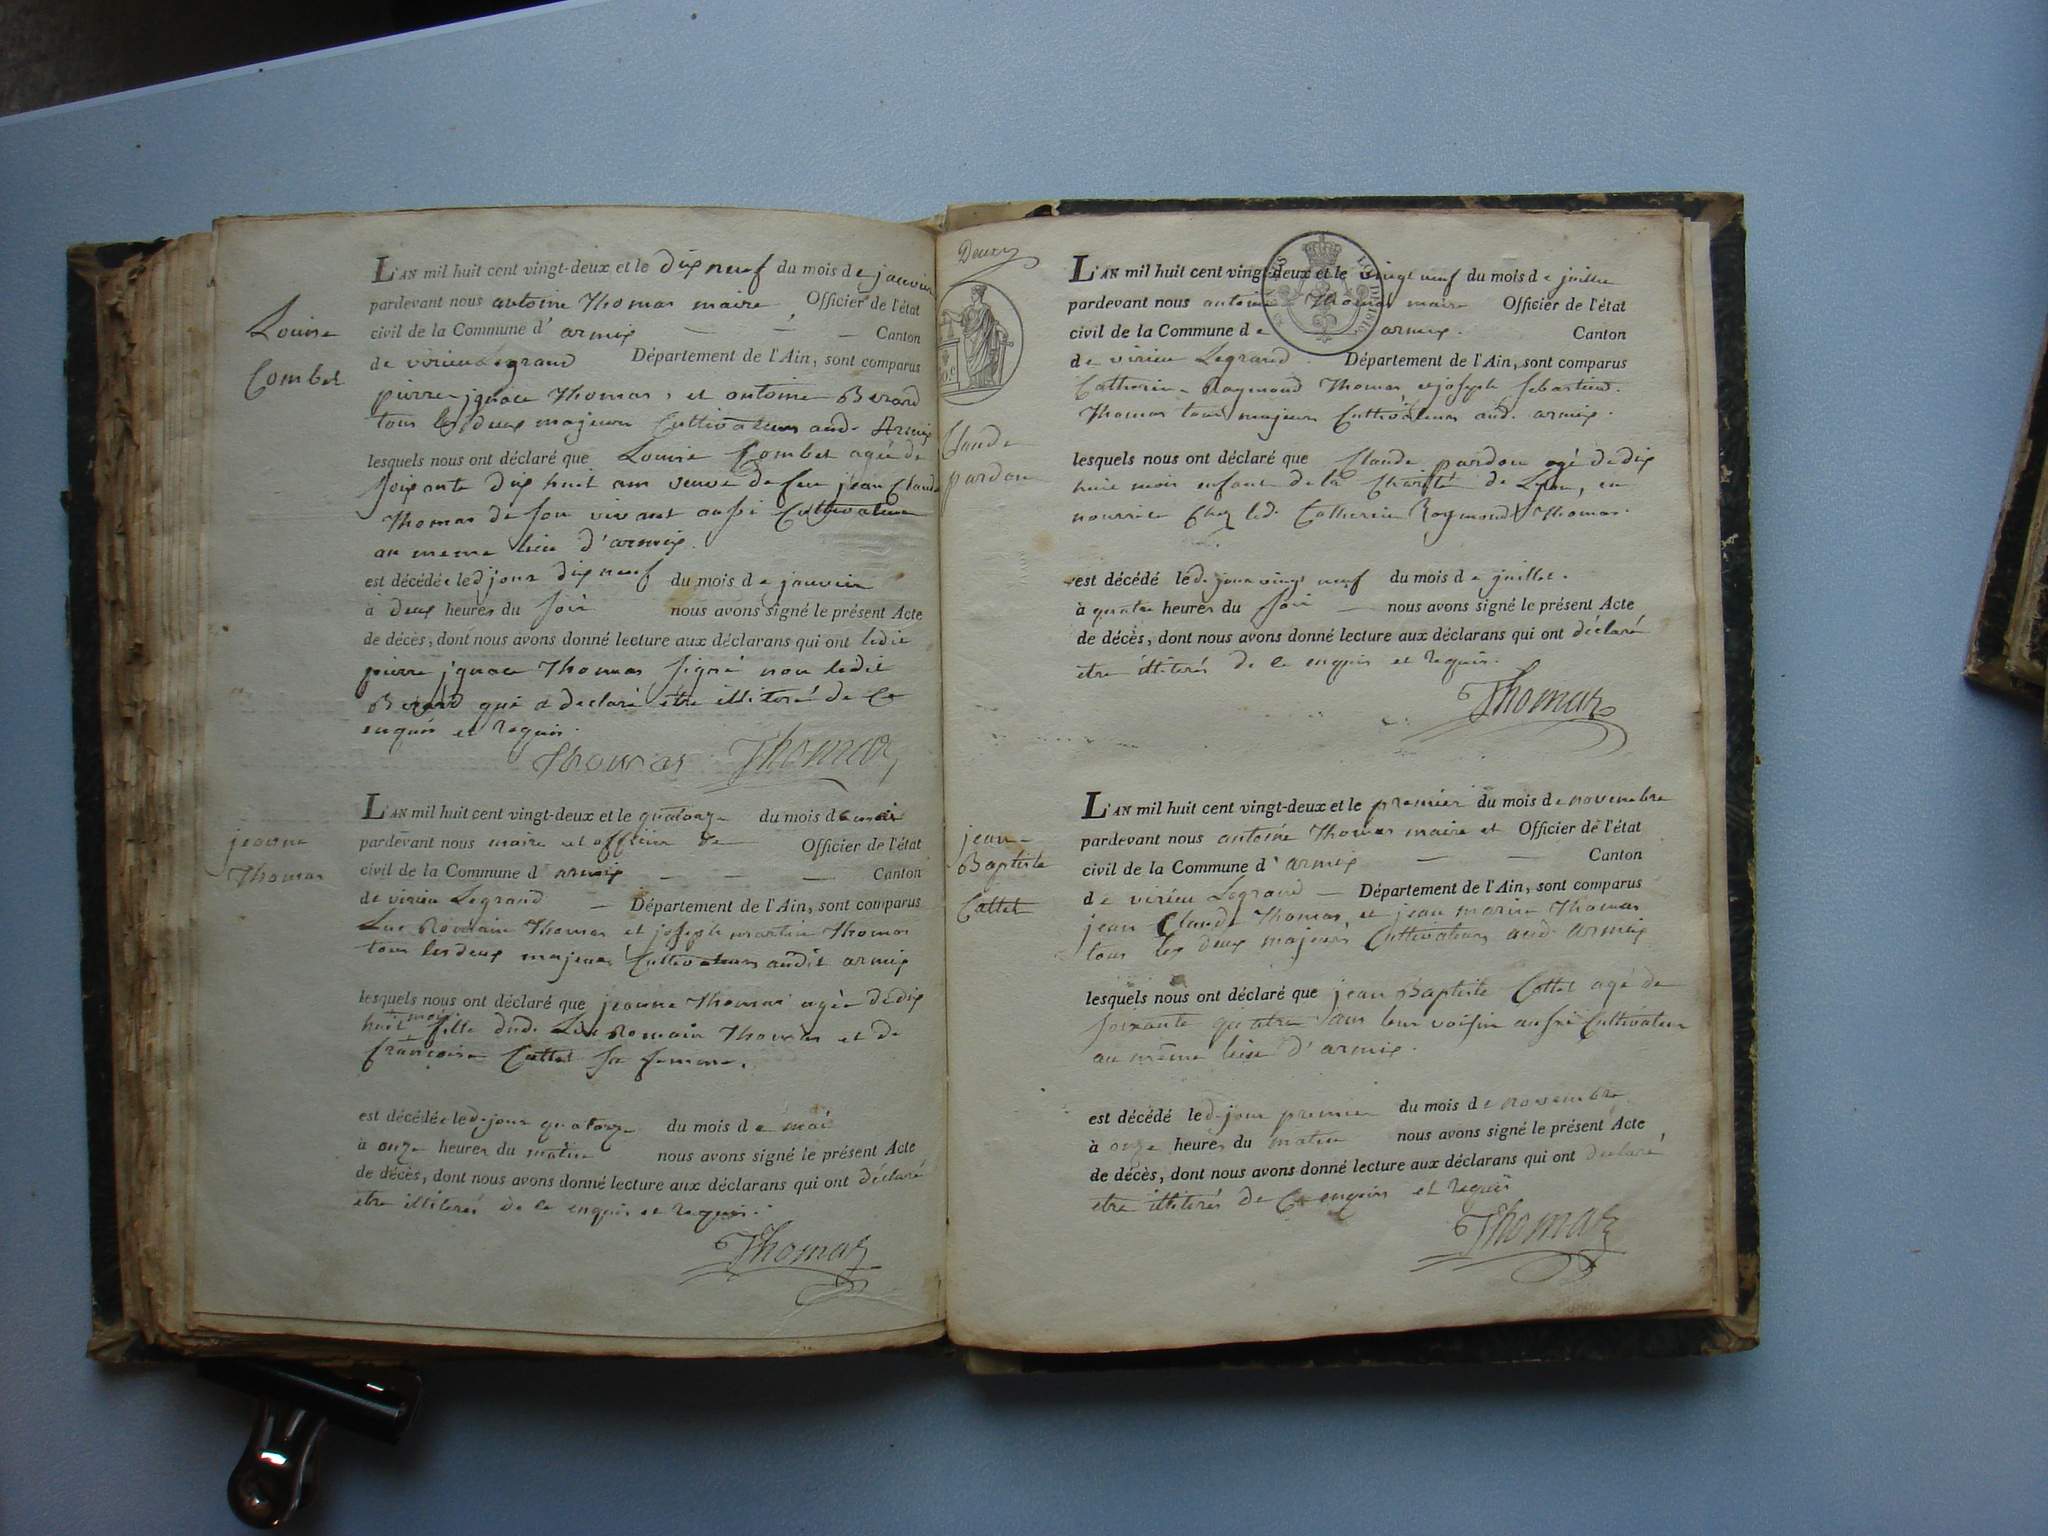 Louise
Combet
L'AN mil huit cent vingt-deux et le dix neuf du mois de janvier
pardevant nous antoine Thomas maire Officier de l'état
civil de la Commune d'armix Canton
de virieu Legrand Département de l'Ain, sont comparus
pierre ignace Thomas, et antoine Berard
tous les deux majeurs Cultivateurs aud. Armix
lesquels nous ont déclaré que Louise Combet agée de
soixante dix huit ans veuve de feu jean Claude
Thomas de son vivant aussi Cultivateur
au meme lieu d'armix.
est décédée led jour dix neuf du mois de janvier
à deux heures du soir nous avons signé le présent Acte
de décès, dont nous avons donné lecture aux déclarans qui ont ledit
pierre ignace Thomas signé non ledit
Berard qui a declaré etre illiteré de Ce
enquis et Requis.
Thomas Thomas
jeanne
Thomas
L'AN mil huit cent vingt-deux et le quatorze du mois de mai
pardevant nous maire et officier de Officier de l'état
civil de la Commune d'armix Canton
de virieu Legrand Département de l'Ain, sont comparus
Luc Romain Thomas et joseph martin Thomas
tous les deux majeurs Cultivateurs audit armix
lesquels nous ont déclaré que jeanne Thomas agée de dix
huit mois fille dud. Luc Romain Thomas et de
françoise Cattet sa femme.
est décédée led. jour quatorze du mois de mai
à onze heures du matin nous avons signé le présent Acte
de décès, dont nous avons donné lecture aux déclarans qui ont déclaré
etre illiterés de Ce enquis et Requis.
Thomas
Deux
Claude
pardon
L'AN mil huit cent vingt-deux et le vingt neuf du mois de juillet
pardevant nous antoine Thomas maire Officier de l'état
civil de la Commune de armix. Canton
de virieu Legrand. Département de l'Ain, sont comparus
Catherin Raymond Thomas, et joseph sebastien
Thomas tous majeurs Cultivateurs aud. armix.
lesquels nous ont déclaré que Claude pardon agé de dix
huit mois enfant de la Charité de Lyon, en
nourrice Chez led. Catherin Raymond Thomas.
est décédé led. jour vingt neuf du mois de juillet.
à quatre heures du soir nous avons signé le présent Acte
de décès, dont nous avons donné lecture aux déclarans qui ont déclaré
etre illiterés de Ce enquis et Requis.
Thomas
jean-
Baptiste
Cattet
L'AN mil huit cent vingt-deux et le premier du mois de novembre
pardevant nous antoine Thomas maire et Officier de l'état
civil de la Commune d'armix Canton
de virieu Legrand Département de l'Ain, sont comparus
jean Claude Thomas, et jean marie Thomas
tous les deux majeurs Cultivateurs aud. armix
lesquels nous ont déclaré que jean Baptiste Cattet agé de
soixante quatre ans leur voisin aussi Cultivateur
au même lieu d'armix.
est décédé led. jour premier du mois de novembre
à onze heures du matin nous avons signé le présent Acte
de décès, dont nous avons donné lecture aux déclarans qui ont declaré
etre illiterés de Ce enquis et Requis
Thomas